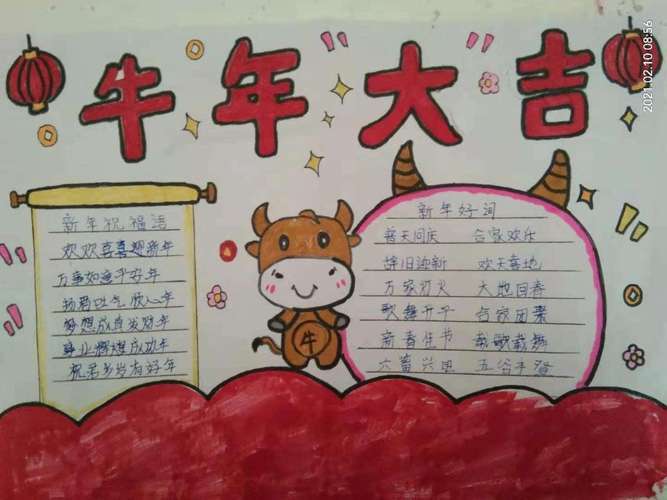 牛年大吉
2021.02.10 08:56
新年祝福语
欢欢喜喜迎新年
万事如意平安年
扬眉吐气顺心年
梦想成真发财年
事业辉煌成功年
祝君岁岁有好年
牛
新年好词
普天同庆 合家欢乐
辞旧迎新 欢天喜地
万家灯火 大地回春
歌舞升平 合家团聚
新春佳节 载歌载舞
六畜兴旺 五谷丰登